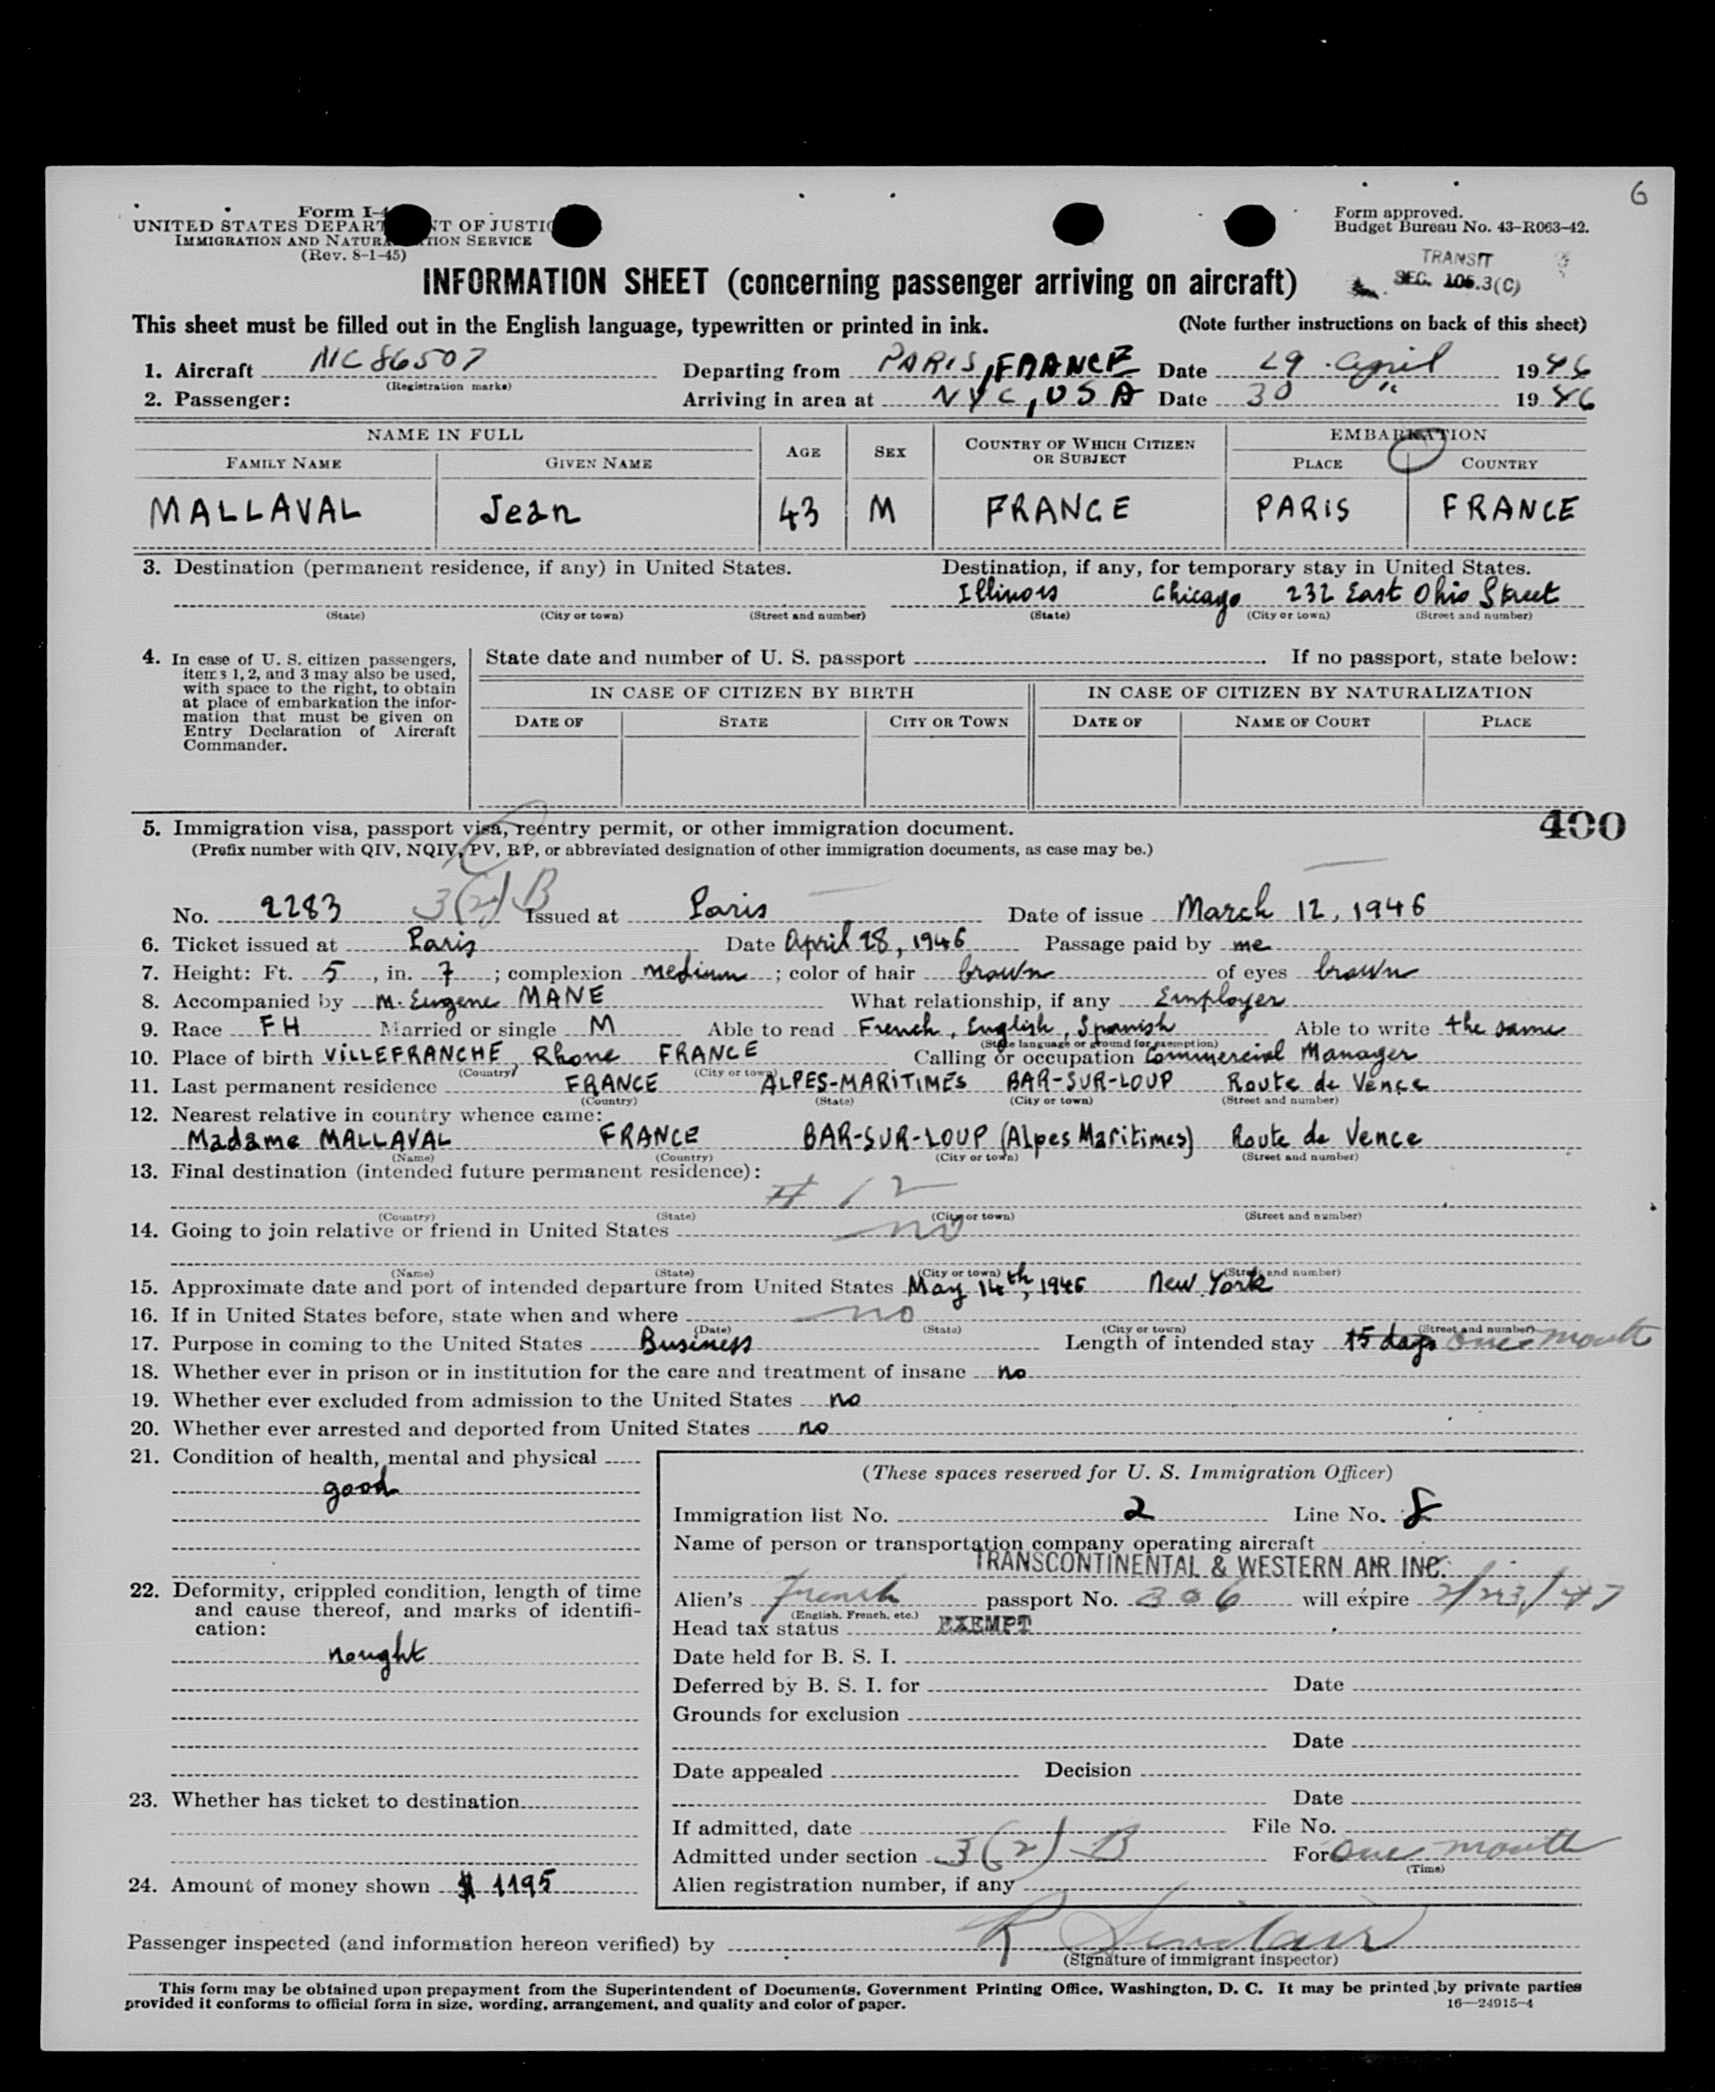 6
Form I-4
UNITED STATES DEPART NT OF JUSTIC
IMMIGRATION AND NATURA TION SERVICE
(Rev. 8-1-45)
Form approved.
Budget Bureau No. 43-R063-42.
TRANSIT
SEC. 105.3(C)
INFORMATION SHEET (concerning passenger arriving on aircraft)
This sheet must be filled out in the English language, typewritten or printed in ink. (Note further instructions on back of this sheet)
1. Aircraft NC 86507 Departing from PARIS, FRANCE Date 29 April 1946
(Registration marks)
2. Passenger: Arriving in area at NYC, USA Date 30 " 1946
NAME IN FULL AGE SEX COUNTRY OF WHICH CITIZEN OR SUBJECT EMBARKATION
FAMILY NAME GIVEN NAME PLACE COUNTRY
MALLAVAL Jean 43 M FRANCE PARIS FRANCE
3. Destination (permanent residence, if any) in United States. Destination, if any, for temporary stay in United States.
Illinois Chicago 232 East Ohio Street
(State) (City or town) (Street and number) (State) (City or town) (Street and number)
4. In case of U. S. citizen passengers, items 1, 2, and 3 may also be used, with space to the right, to obtain at place of embarkation the information that must be given on Entry Declaration of Aircraft Commander.
State date and number of U. S. passport . If no passport, state below:
IN CASE OF CITIZEN BY BIRTH IN CASE OF CITIZEN BY NATURALIZATION
DATE OF STATE CITY OR TOWN DATE OF NAME OF COURT PLACE
400
5. Immigration visa, passport visa, reentry permit, or other immigration document.
(Prefix number with QIV, NQIV, PV, RP, or abbreviated designation of other immigration documents, as case may be.)
No. 2283 3(2) B Issued at Paris Date of issue March 12, 1946
6. Ticket issued at Paris Date April 28, 1946 Passage paid by me
7. Height: Ft. 5, in. 7; complexion medium; color of hair brown of eyes brown
8. Accompanied by M. Eugene MANE What relationship, if any Employer
9. Race FH Married or single M Able to read French, English, Spanish Able to write the same
(State language or ground for exemption)
10. Place of birth VILLEFRANCHE, Rhone FRANCE Calling or occupation Commercial Manager
(Country) (City or town)
11. Last permanent residence FRANCE ALPES-MARITIMES BAR-SUR-LOUP Route de Vence
(Country) (State) (City or town) (Street and number)
12. Nearest relative in country whence came:
Madame MALLAVAL FRANCE BAR-SUR-LOUP (Alpes Maritimes) Route de Vence
(Name) (Country) (City or town) (Street and number)
13. Final destination (intended future permanent residence):
# 12
(Country) (State) (City or town) (Street and number)
14. Going to join relative or friend in United States no
(Name) (State) (City or town) (Street and number)
15. Approximate date and port of intended departure from United States May 14th, 1946 New York
16. If in United States before, state when and where no
(Date) (State) (City or town) (Street and number)
17. Purpose in coming to the United States Business Length of intended stay 15 days one month
18. Whether ever in prison or in institution for the care and treatment of insane no
19. Whether ever excluded from admission to the United States no
20. Whether ever arrested and deported from United States no
21. Condition of health, mental and physical
good
22. Deformity, crippled condition, length of time and cause thereof, and marks of identification:
nought
23. Whether has ticket to destination
24. Amount of money shown $ 1195
(These spaces reserved for U. S. Immigration Officer)
Immigration list No. 2 Line No. 8
Name of person or transportation company operating aircraft
TRANSCONTINENTAL & WESTERN AIR INC.
Alien's French passport No. 306 will expire 2/23/47
(English, French, etc.)
Head tax status EXEMPT
Date held for B. S. I.
Deferred by B. S. I. for Date
Grounds for exclusion
Date
Date appealed Decision
Date
If admitted, date File No.
Admitted under section 3(2) B For one month
(Time)
Alien registration number, if any
Passenger inspected (and information hereon verified) by R Sinclair
(Signature of immigrant inspector)
This form may be obtained upon prepayment from the Superintendent of Documents, Government Printing Office, Washington, D. C. It may be printed by private parties
provided it conforms to official form in size, wording, arrangement, and quality and color of paper. 16—24915-4